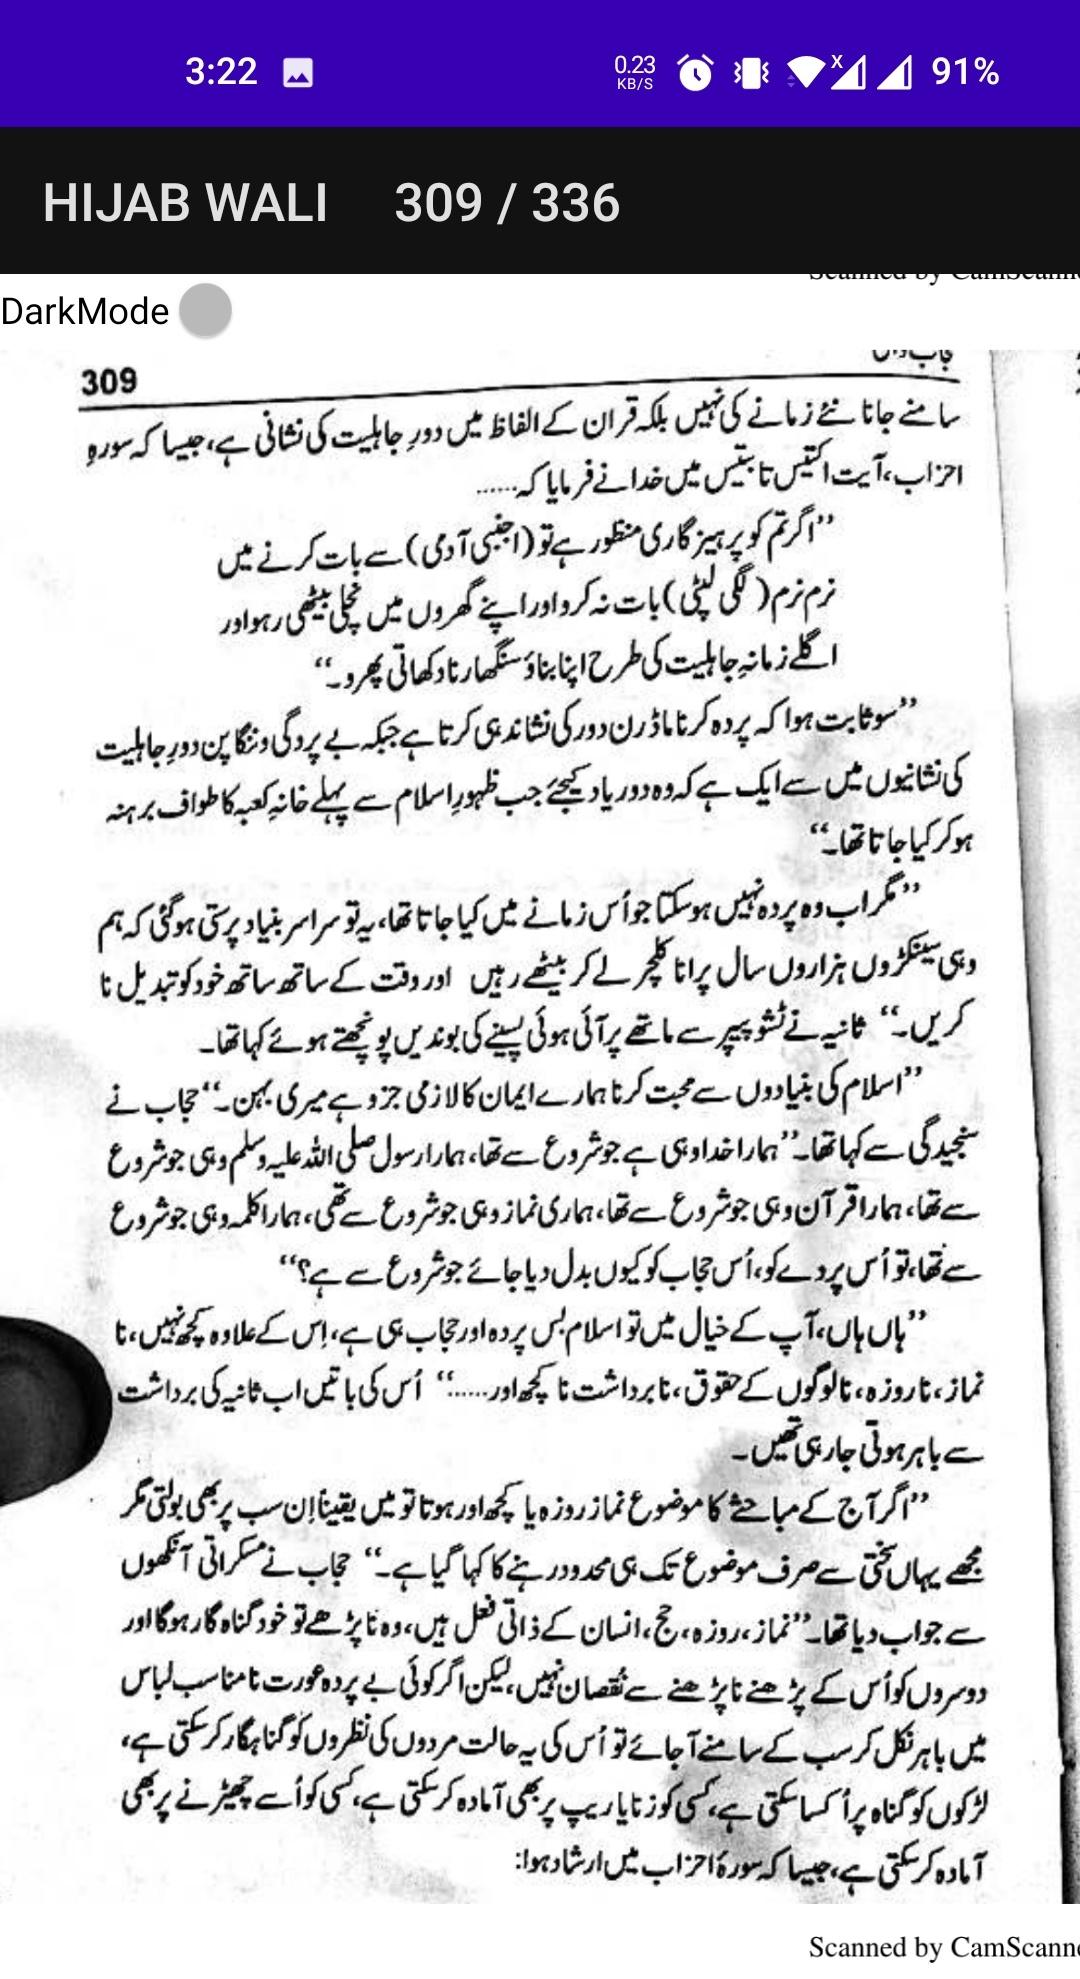 3:22
0.23 KB/S
91%
HIJAB WALI 309 / 336
DarkMode
309
سامنے جانا نئے زمانے کی نہیں بلکہ قران کے الفاظ میں دورِ جاہلیت کی نشانی ہے، جیسا کہ سورہِ
احزاب، آیت اکتیس تا بتیس میں خدا نے فرمایا کہ......
”اگر تم کو پرہیز گاری منظور ہے تو (اجنبی آدمی) سے بات کرنے میں
نرم نرم (لگی لپٹی) بات نہ کرو اور اپنے گھروں میں نچلی بیٹھی رہو اور
اگلے زمانہِ جاہلیت کی طرح اپنا بناؤ سنگھار نا دکھاتی پھرو۔“
”سو ثابت ہوا کہ پردہ کرنا ماڈرن دور کی نشاندہی کرتا ہے جبکہ بے پردگی و ننگا پن دورِ جاہلیت
کی نشانیوں میں سے ایک ہے کہ وہ دور یاد کیجئے جب ظہورِ اسلام سے پہلے خانہِ کعبہ کا طواف برہنہ
ہو کر کیا جاتا تھا۔“
”مگر اب وہ پردہ نہیں ہوسکتا جو اُس زمانے میں کیا جاتا تھا، یہ تو سراسر بنیاد پرستی ہوگئی کہ ہم
وہی سینکڑوں ہزاروں سال پرانا کلچر لے کر بیٹھے رہیں اور وقت کے ساتھ ساتھ خود کو تبدیل نا
کریں۔“ ثانیہ نے ٹشو پیپر سے ماتھے پر آئی ہوئی پسینے کی بوندیں پونچھتے ہوئے کہا تھا۔
”اسلام کی بنیادوں سے محبت کرنا ہمارے ایمان کا لازمی جزو ہے میری بہن۔“ حجاب نے
سنجیدگی سے کہا تھا۔ ”ہمارا خدا وہی ہے جو شروع سے تھا، ہمارا رسول صلی اللہ علیہ وسلم وہی جو شروع
سے تھا، ہمارا قرآن وہی جو شروع سے تھا، ہماری نماز وہی جو شروع سے تھی، ہمارا کلمہ وہی جو شروع
سے تھا، تو اُس پردے کو، اُس حجاب کو کیوں بدل دیا جائے جو شروع سے ہے؟“
”ہاں ہاں، آپ کے خیال میں تو اسلام بس پردہ اور حجاب ہی ہے، اِس کے علاوہ کچھ نہیں، نا
نماز، نا روزہ، نا لوگوں کے حقوق، نا برداشت نا کچھ اور......“ اُس کی باتیں اب ثانیہ کی برداشت
سے باہر ہوتی جارہی تھیں۔
”اگر آج کے مباحثے کا موضوع نماز روزہ یا کچھ اور ہوتا تو میں یقیناً اِن سب پر بھی بولتی مگر
مجھے یہاں سختی سے صرف موضوع تک ہی محدود رہنے کا کہا گیا ہے۔“ حجاب نے مسکراتی آنکھوں
سے جواب دیا تھا۔ ”نماز، روزہ، حج، انسان کے ذاتی فعل ہیں، وہ نا پڑھے تو خود گناہ گار ہوگا اور
دوسروں کو اُس کے پڑھنے نا پڑھنے سے نُقصان نہیں، لیکن اگر کوئی بے پردہ عورت نامناسب لباس
میں باہر نکل کر سب کے سامنے آجائے تو اُس کی یہ حالت مردوں کی نظروں کو گناہگار کرسکتی ہے،
لڑکوں کو گناہ پر اُکسا سکتی ہے، کسی کو زنا یا ریپ پر بھی آمادہ کرسکتی ہے، کسی کو اُسے چھیڑنے پر بھی
آمادہ کرسکتی ہے، جیسا کہ سورۂ احزاب میں ارشاد ہوا:
Scanned by CamScanne